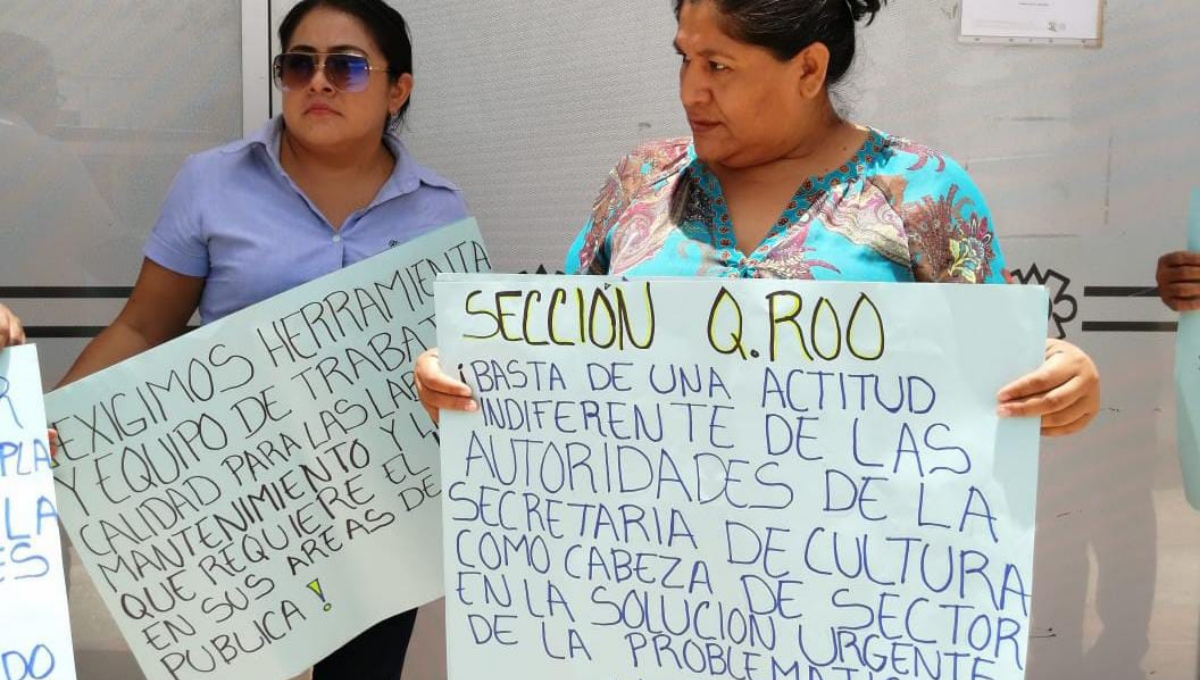 ¡EXIGIMOS HERRAMIENTA
Y EQUIPO DE TRABAJO
CALIDAD PARA LAS
MANTENIMIENTO Y
QUE REQUIERE EL
EN SUS AREAS DE
PUBLICA!
SECCIÓN Q.ROO
¡BASTA DE UNA ACTITUD
INDIFERENTE DE LAS
AUTORIDADES DE LA
SECRETARIA DE CULTURA
COMO CABEZA DE SECTOR
EN LA SOLUCION URGENTE
DE LA
LA
DO